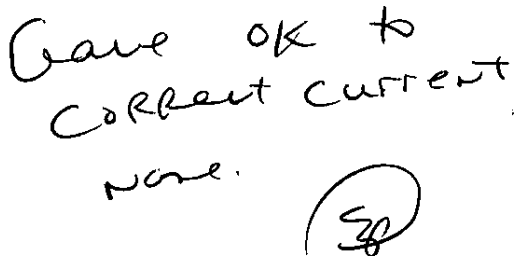 Gave OK to
CORRect current
None.